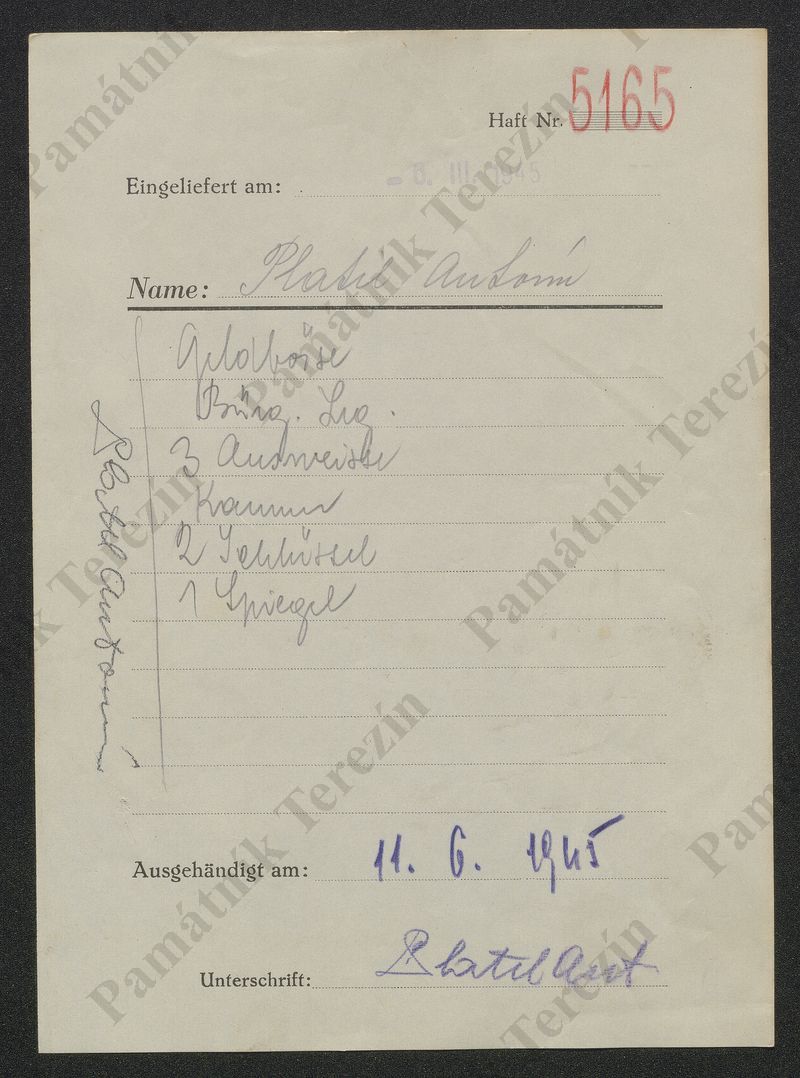 Haft Nr. 5165
Eingeliefert am: - 6. III. 1945
Name: Platil Antonín
Geldbörse
Bürg. Leg.
3 Ausweisse
Kamm
2 Schlüssel
1 Spiegel
Platil Antonín
Ausgehändigt am: 11. 6. 1945
Unterschrift: Platil Ant
Památník Terezín